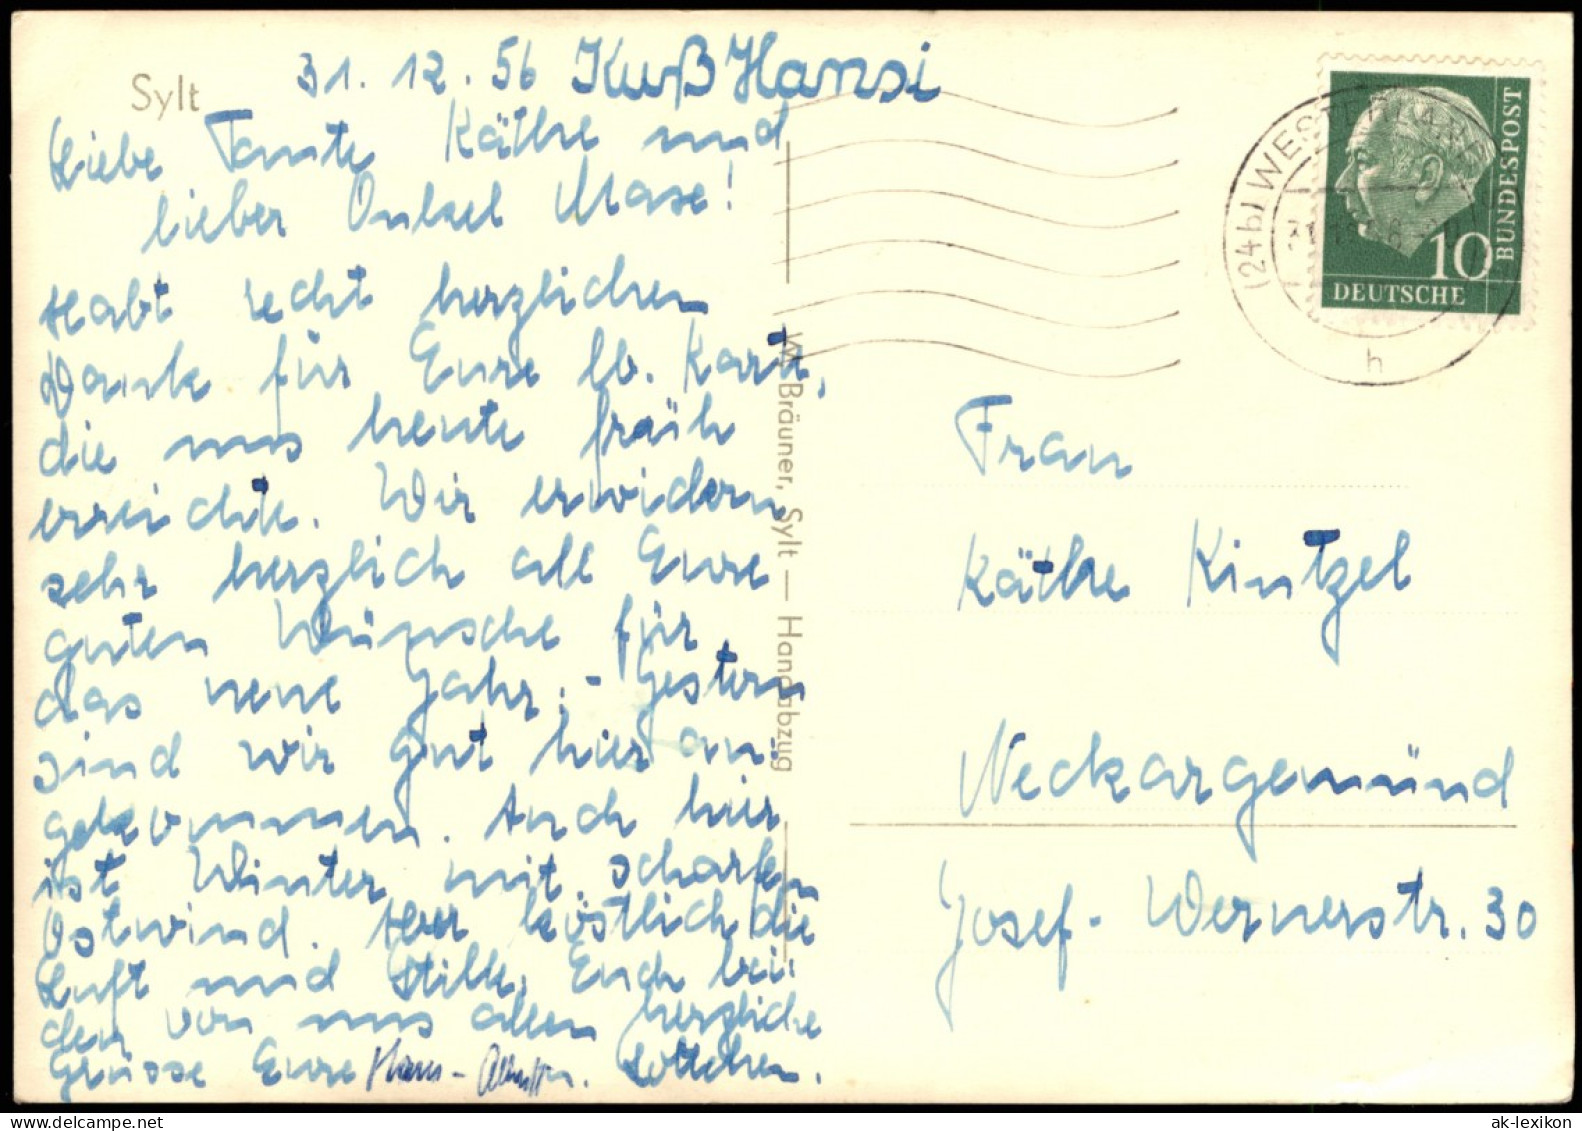 Sylt
31. 12. 56 Kuß Hansi
Liebe Tante Käthe und
lieber Onkel Maxe!
Habt recht herzlichen
Dank für Eure lb. Karte,
die uns heute früh
erreichte. Wir erwidern
sehr herzlich all Eure
guten Wünsche für
das neue Jahr. - Gestern
sind wir gut hier an-
gekommen. Auch hier
ist Winter mit scharfem
Ostwind. Aber köstlich die
Luft und Stille. Euch bei-
den von uns allen herzliche
Grüsse Eure Hans- u. Lottchen.
W. Bräuner, Sylt — Handabzug
(24b) WESTERLAND
h
DEUTSCHE
BUNDESPOST
10
Frau
Käthe Kintzel
Neckargemünd
Josef-Wernerstr. 30
ak-lexikon